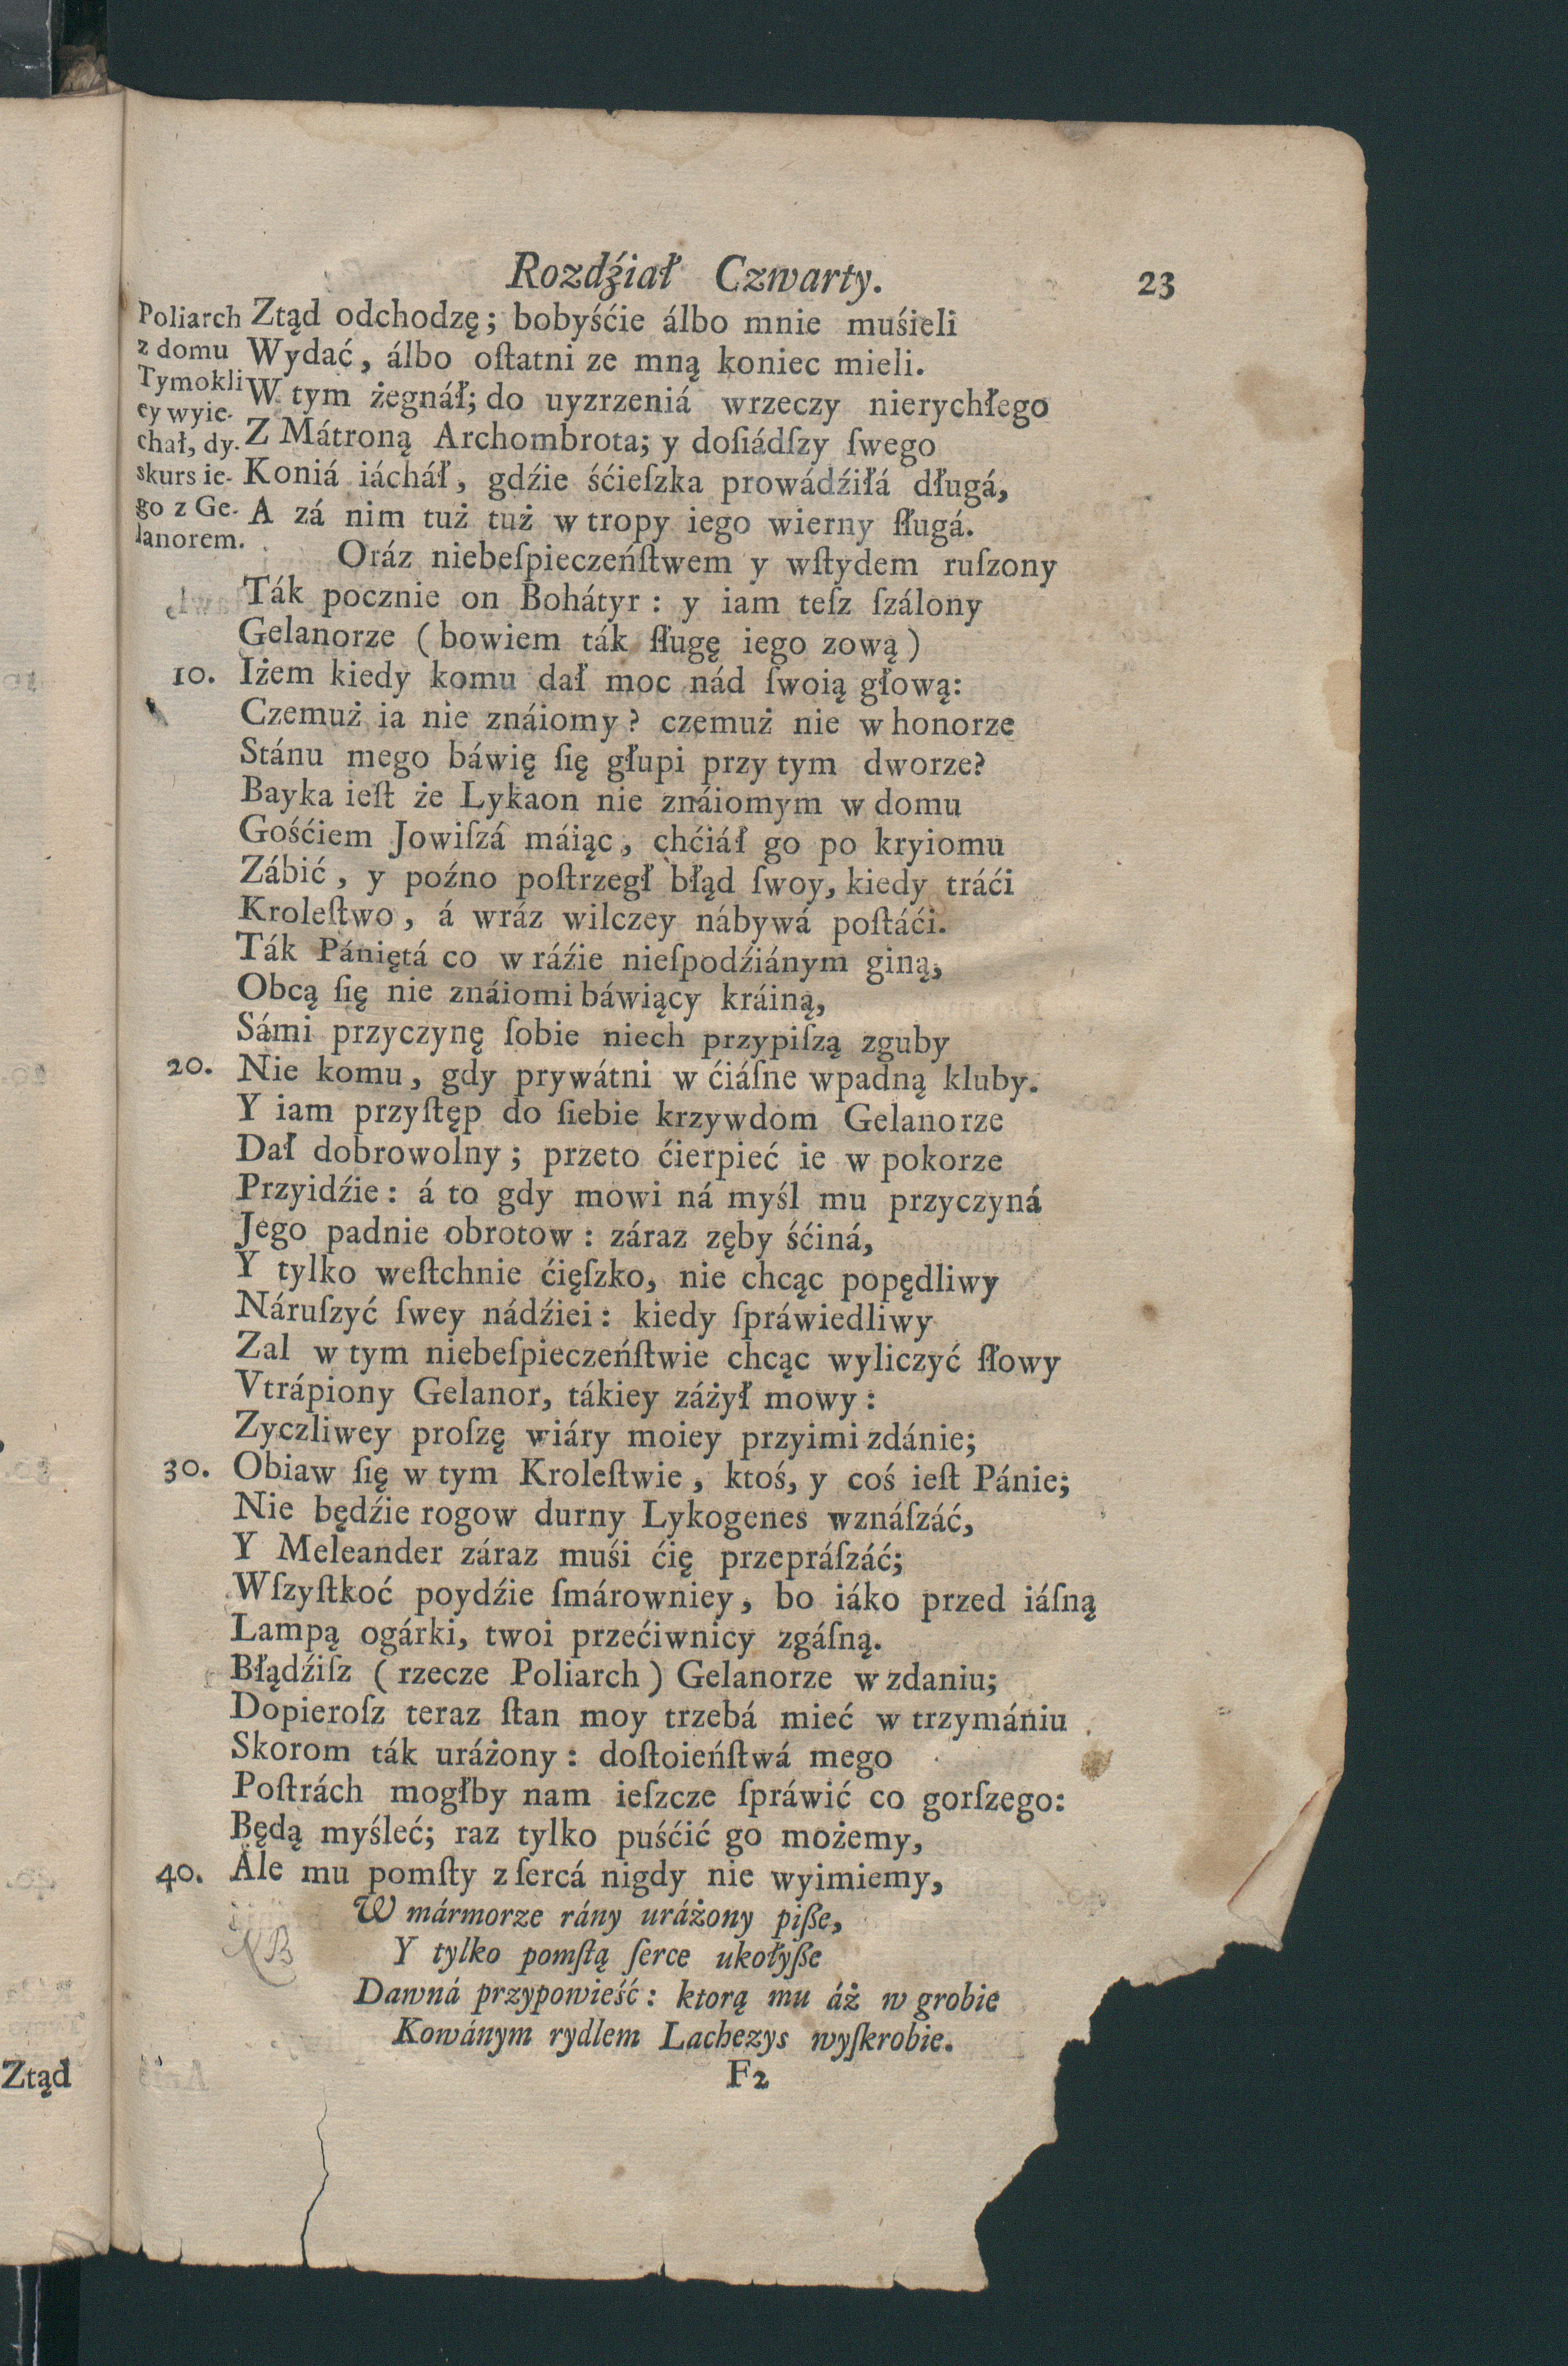 Rozdźiał Czwarty. 23
Poliarch
z domu
Tymokli
ey wyie-
chał, dy-
skurs ie-
go z Ge-
lanorem.
Ztąd odchodzę; bobyśćie álbo mnie muśieli
Wydać, álbo oſtatni ze mną koniec mieli.
W tym żegnáł; do uyzrzeniá wrzeczy nierychłego
Z Mátroną Archombrota; y dosiádſzy ſwego
Koniá iácháł, gdźie śćieſzka prowádźiłá długá,
A zá nim tuż tuż w tropy iego wierny ſługá.
Oráz niebeſpieczeńſtwem y wſtydem ruſzony
Ták pocznie on Bohátyr : y iam teſz ſzálony
Gelanorze ( bowiem ták ſługę iego zową )
10. Iżem kiedy komu dał moc nád ſwoią głową:
Czemuż ia nie znáiomy? czemuż nie w honorze
Stánu mego báwię ſię głupi przy tym dworze?
Bayka ieſt że Lykaon nie znáiomym w domu
Gośćiem Jowiſzá máiąc, chćiáł go po kryiomu
Zábić, y poźno poſtrzegł błąd ſwoy, kiedy tráći
Kroleſtwo, á wráz wilczey nábywá poſtáći.
Ták Pániętá co w ráźie nieſpodźiánym giną,
Obcą ſię nie znáiomi báwiący kráiną,
Sámi przyczynę ſobie niech przypiſzą zguby
20. Nie komu, gdy prywátni w ćiáſne wpadną kluby.
Y iam przyſtęp do ſiebie krzywdom Gelanorze
Dał dobrowolny; przeto ćierpieć ie w pokorze
Przyidźie: á to gdy mowi ná myśl mu przyczyná
Jego padnie obrotow : záraz zęby śćiná,
Y tylko weſtchnie ćięſzko, nie chcąc popędliwy
Náruſzyć ſwey nádźiei: kiedy ſpráwiedliwy
Zal w tym niebeſpieczeńſtwie chcąc wyliczyć ſłowy
Vtrápiony Gelanor, tákiey záżył mowy :
Zyczliwey proſzę wiáry moiey przyimi zdánie;
30. Obiaw ſię w tym Kroleſtwie, ktoś, y coś ieſt Pánie;
Nie będźie rogow durny Lykogenes wznáſzáć,
Y Meleander záraz muśi ćię przepráſzáć;
Wſzyſtkoć poydźie ſmárowniey, bo iáko przed iáſną
Lampą ogárki, twoi przećiwnicy zgáſną.
Błądźiſz ( rzecze Poliarch ) Gelanorze w zdaniu;
Dopieroſz teraz ſtan moy trzebá mieć w trzymániu
Skorom ták uráżony : doſtoieńſtwá mego
Poſtrách mogłby nam ieſzcze ſpráwić co gorſzego:
Będą myśleć; raz tylko puśćić go możemy,
40. Ale mu pomſty z ſercá nigdy nie wyimiemy,
W mármorze rány uráżony piße,
NB
Y tylko pomſtą ſerce ukołyße
Dawná przypowieść : ktorą mu áż w grobie
Kowánym rydlem Lachezys wyſkrobie.
F2
Ztąd